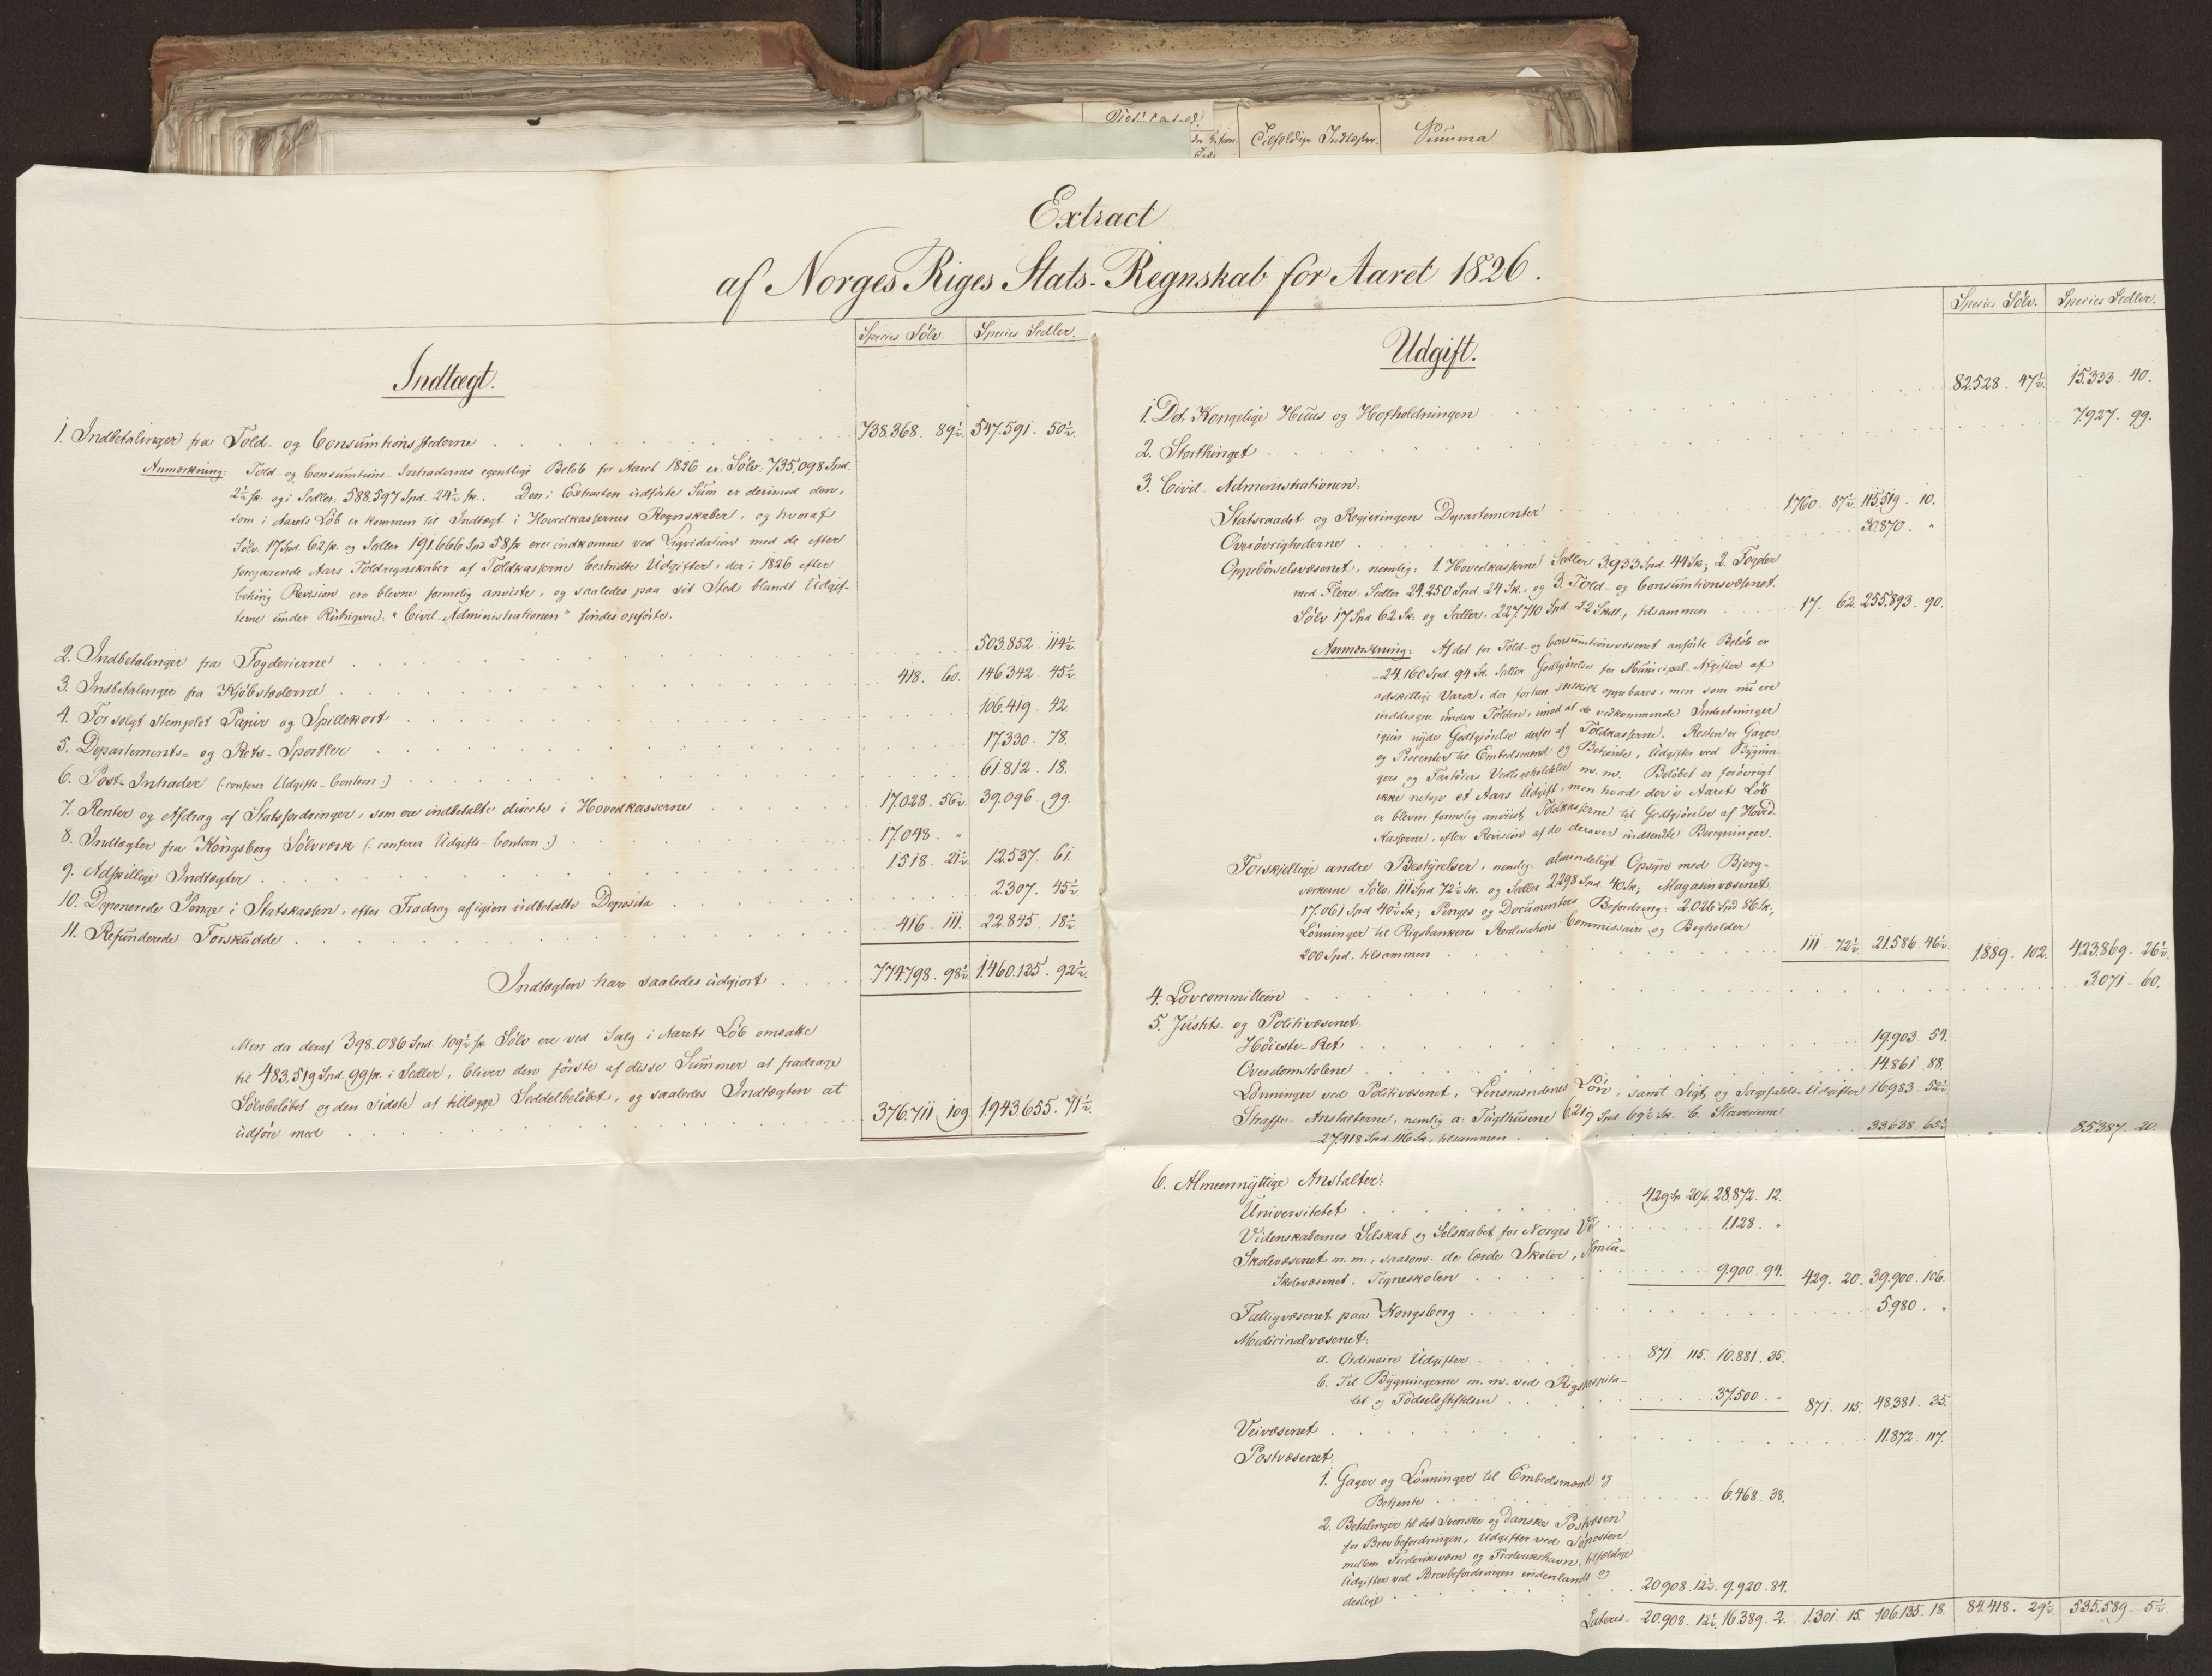 Tilfældige Indtægter.
Summa
Extract
af Norges Riges Stats-Regnskab for Aaret 1826.
Species Sölv. Species Sedler.
Indtægt.
1. Indbetalinger fra Told- og Consumtionsstederne 738.368. 89½. 547.591. 50½.
Anmærkning: Told- og Consumtions-Intradernes egentlige Belöb for Aaret 1826 er: Sölv: 735,098 Spd.
2½ sk. og i Sedler: 588.597 Spd. 24½ sk. Den i Extracten udförte Sum er derimod den,
som i Aarets Löb er kommen til Indtægt i Hovedkassernes Regnskaber, og hvoraf
Sölv. 17 Spd. 62 sk. og Sedler 191.666 Spd 58 sk ere indkomne ved Liqvidation med de efter
foregaaende Aars Toldregnskaber af Toldkasserne bestridte Udgifter, der i 1826 efter
behörig Revision ere blevne formelig anviste, og saaledes paa sit Sted blandt Udgif-
terne under Rubriqven: "Civil-Administrationen" findes opförte.
2. Indbetalinger fra Fogderierne 503.852. 114½.
3. Indbetalinger fra Kjöbstæderne 418. 60. 146.342. 45½.
4. For solgt stemplet Papir og Spillekort 106.419. 42.
5. Departements- og Rets-Sportler 17.330. 78.
6. Post-Intrader (: conferer Udgifts-Contoen :) 61.812. 18.
7. Renter og Afdrag af Statsfordringer, som ere indbetalte directe i Hovedkasserne 17.028. 56½. 39.096. 99.
8. Indtægter fra Kongsberg Sölvværk (: conferer Udgifts-Contoen :) 17.048. "
9. Adskillige Indtægter 1518. 21½. 12.537. 61.
10. Deponerede Penge i Statskassen, efter Fradrag af igien udbetalte Deposita 2307. 45½.
11. Refunderede Forskudde 416. 111. 22.845. 18½.
Indtægten har saaledes udgjort 774.798. 98½. 1.460.135. 92½.
Men da deraf 398.086 Spd. 109½ sk. Sölv ere ved Salg i Aarets Löb omsatte
til 483.519 Spd. 99 sk. i Sedler, bliver den förste af disse Summer at fradrage
Sölvbelöbet og den sidste at tillægge Seddelbelöbet, og saaledes Indtægten at
udföre med 376.711 109. 1.943.655. 71½.
Species Sölv. Species Sedler.
Udgift.
1. Det Kongelige Huus og Hofholdningen 82.528. 47½. 15.333. 40.
2. Storthinget 7.927. 99.
3. Civil-Administrationen:
Statsraadet og Regieringens Departementer 1.760. 87½. 115.519. 10.
Overövrighederne 30.870. "
Oppebörselsvæsenet, nemlig: 1. Hovedkasserne Sedler 3.933 Spd. 44 Sk.; 2. Fogder
med Flere: Sedler 24.250 Spd. 24 Sk. og 3. Told- og Consumtionsvæsenet.
Sölv 17 Spd 62 Sk. og Sedler. 227.710 Spd 22 Skill., tilsammen 17. 62. 255.893. 90.
Anmærkning: Af det for Told- og Consumtionsvæsenet anförte Belöb er
24.160 Spd. 94 Sk. Sedler Godtgjörelse for Municipal-Afgifter af
adskillige Varer, der forhen særskilt oppebares, men som nu ere
inddragne under Tolden, imod at de vedkommende Indretninger
igien nyde Godtgjörelse derfor af Toldkasserne. Resten er Gager
og Procenter til Embedsmænd og Betjente, Udgifter ved Bygnin-
gers og Fartöiers Vedligeholdelse m. m. Belöbet er forövrigt
ikke netop et Aars Udgift, men hvad der i Aarets Löb
er bleven formelig anviist Toldkasserne til Godtgjörelse af Hoved-
kasserne, efter Revision af de derover indsendte Beregninger.
Forskjellige andre Bestyrelser, nemlig: almindeligt Opsyn med Bjerg-
værkerne Sölv: 111 Spd 72½ Sk. og Sedler 2298 Spd. 40 Sk; Magasinvæsenet,
17.061 Spd 40½ Sk; Penges og Documenters Befordring: 2.026 Spd 86 Sk;
Lönninger til Rigsbankens Realisations Commissaire og Bogholder
200 Spd, tilsammen 111. 72½. 21.586. 46½. 1.889. 102. 423.869. 26½.
4. Lovcommitteen 3.071. 60.
5. Justits- og Politivæsenet:
Höieste-Ret 19.903. 54.
Overdomstolene 14.861. 88.
Lönninger ved Politivæsenet, Lensmændenes Lön, samt Sigt og Sagefalds-Udgifter 16.983. 52½.
Straffe-Anstalterne, nemlig a: Tugthusene 6.219 Spd 69½ Sk. b. Slaverierne
27.418 Spd 116 Sk, tilsammen 33.638. 65½. 85.387. 20.
6. Almeennyttige Anstalter:
Universitetet 429 Sp 20 sk. 28.872. 12.
Videnskabernes Selskab og Selskabet for Norges Vel 1.128. "
Skolevæsenet m. m., saasom: de lærde Skoler, Almue-
Skolevæsenet, Tegneskolen 9.900. 94. 429. 20. 39.900. 106.
Fattigvæsenet paa Kongsberg 5.980. "
Medicinalvæsenet:
a. Ordinaire Udgifter 871. 115. 10.881. 35.
b. Til Bygningerne m. m. ved Rigshospita-
let og Födselsstiftelsen 37.500. " 871. 115. 48.381. 35.
Veivæsenet 11.872. 117.
Postvæsenet:
1. Gager og Lönninger til Embedsmænd og
Betjente 6.468. 38.
2. Betalinger til det Svenske og danske Postvæsen
for Brevbefordringen, Udgifter ved Söposten
mellem Frederiksværn og Frederikshavn, tilfældige
Udgifter ved Brevbefordringen indenlands og
deslige 20.908. 12½. 9.920. 84.
Lateris- 20.908. 12½. 16.389. 2. 1.301. 15. 106.135. 18. 84.418. 29½. 535.589. 5½.